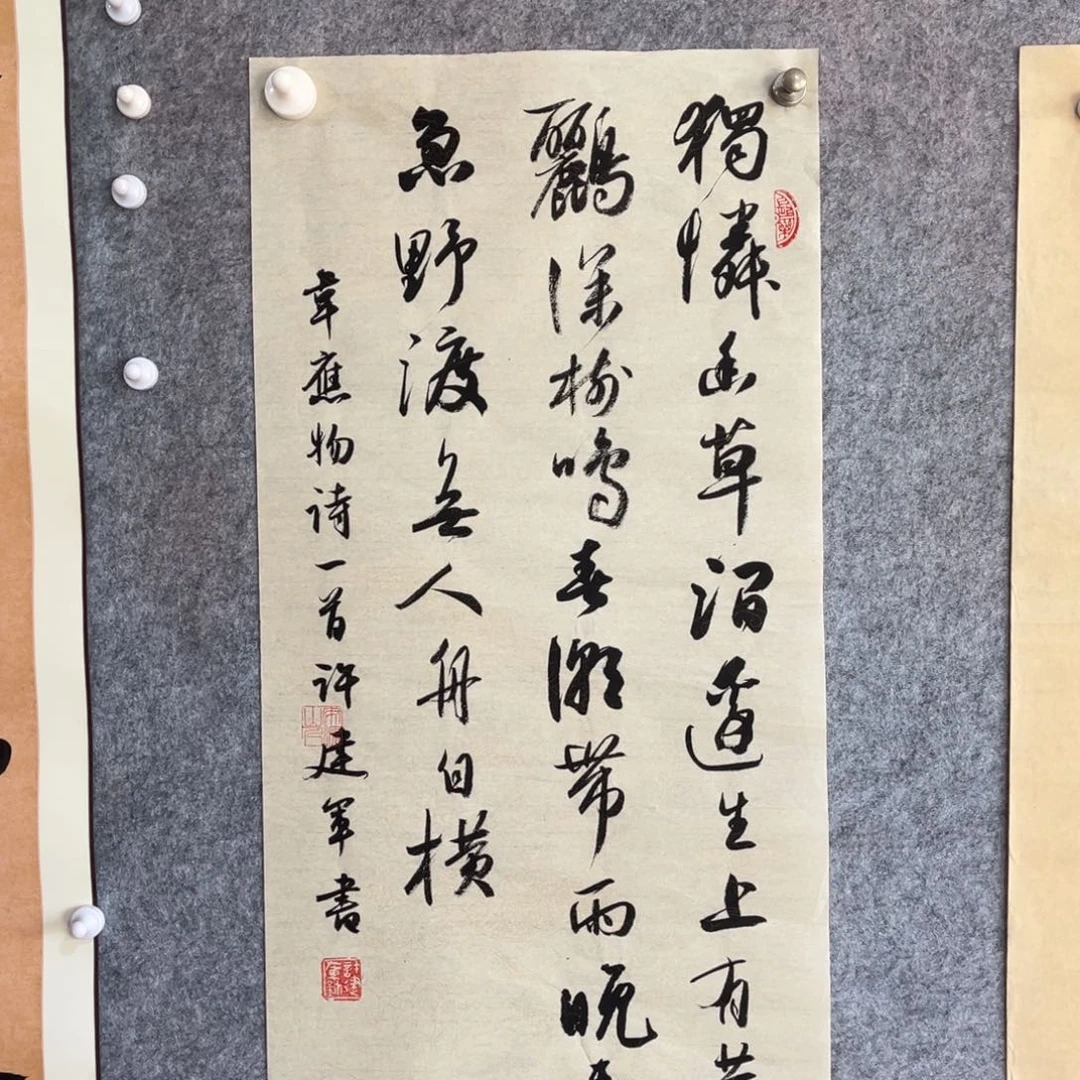 獨憐幽草澗邊生上有
鸝深樹鳴春潮帶雨晚
急野渡無人舟自横
韋應物诗一首许建軍書